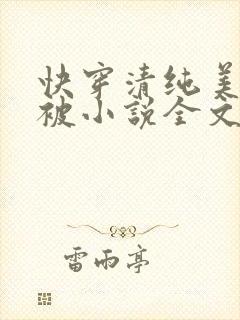 快穿清纯美
被小说全文
雷雨亭